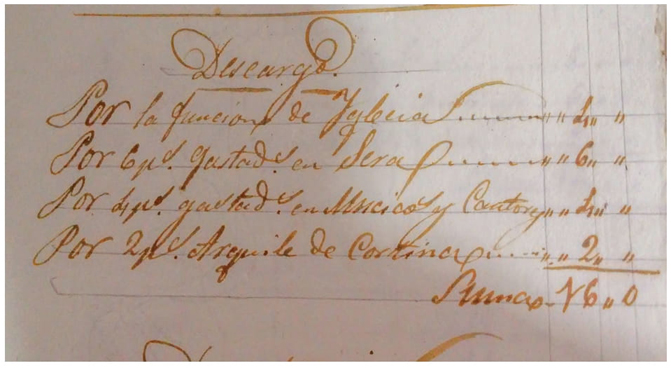 Descargo.
Por la funcion de Yglecia „ 4 „ „
Por 6 ps. gastads. en Sera „ 6 „ „
Por 4 ps. gastads. en Mucicos y Cantores „ 4 „ „
Por 2 ps. Arquile de Cortina „ 2 „ „
Suma 16 „ 0